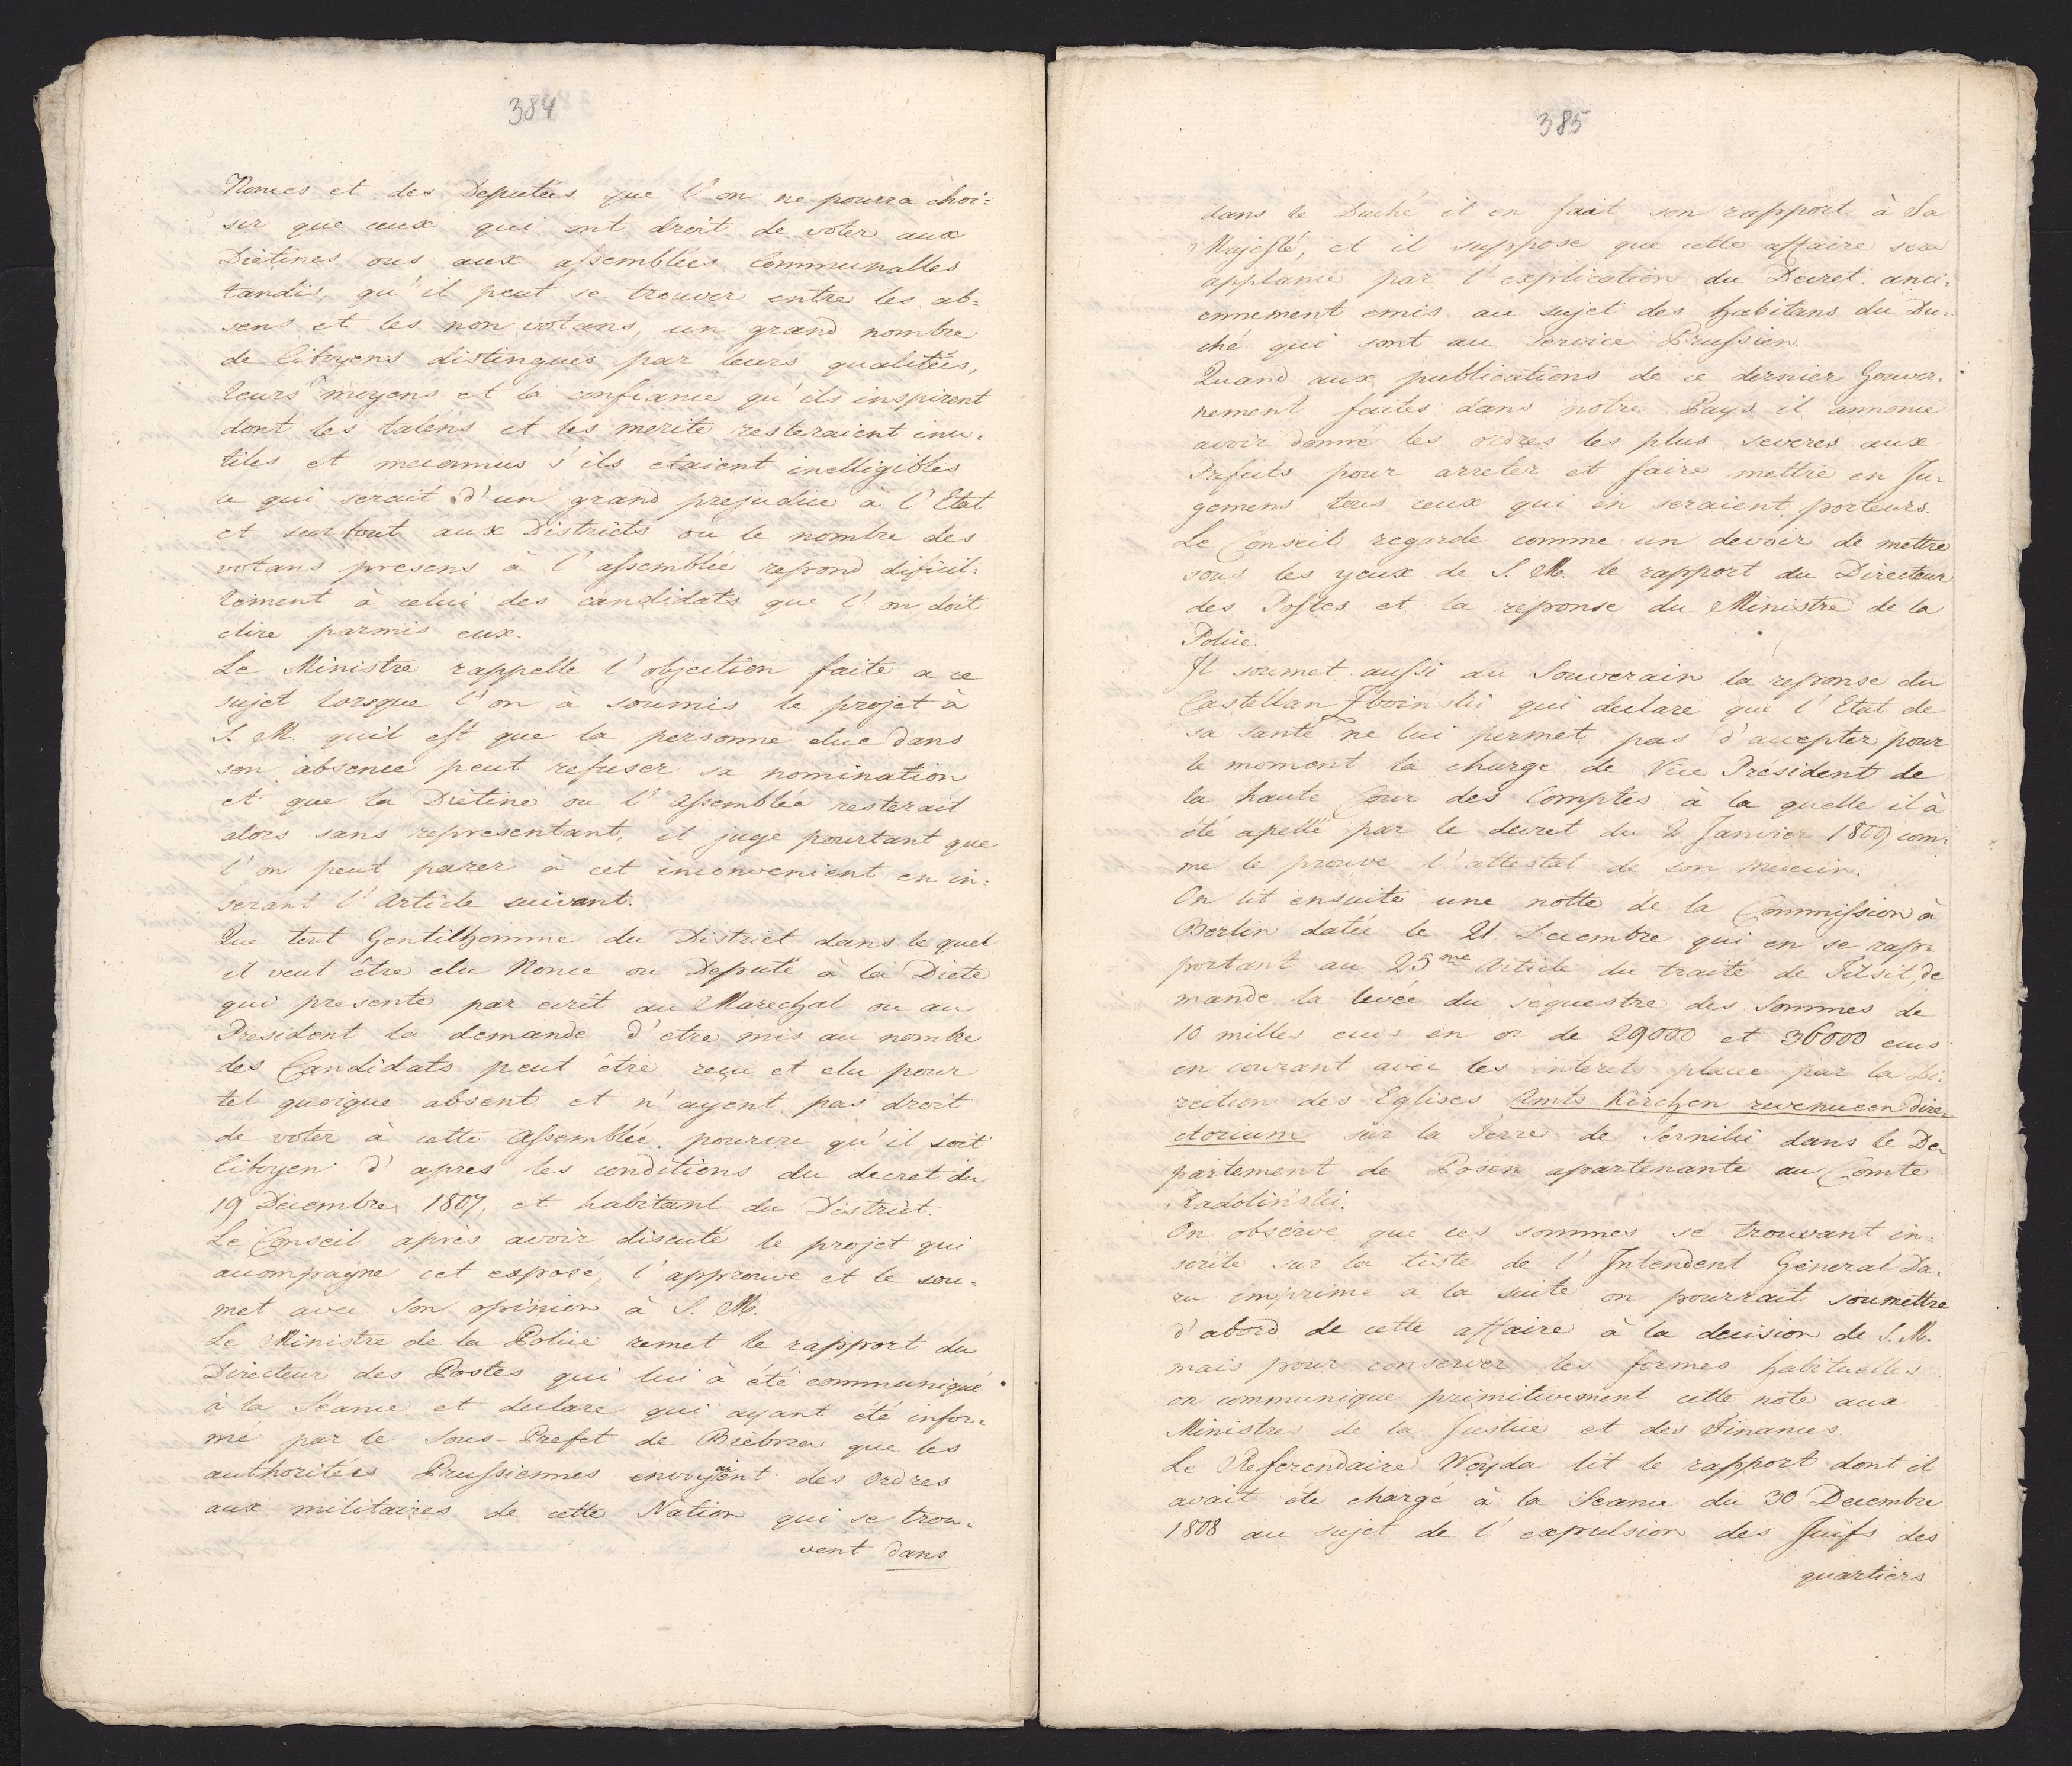 384
Nonces et des Deputées que l'on ne pourra choi=
sir que ceux qui ont droit de voter aux
Diètines ous aux assemblées Communalles
tandis, qu'il peut se trouver entre les ab=
sens et les non votans, un grand nombre
de Citoyens distingués par leurs qualitées,
leurs moyens et la confiance qu'ils inspirent
dont les taléns et les merite resteraient inu=
tiles et meconnus s'ils etaient inelligibles
ce qui serait d'un grand prejudice à l'Etat
et surtout aux Districts ou le nombre des
votans presens à l'assemblée repond dificil=
lement à celui des candidats que l'on doit
elire parmis eux.
Le Ministre rappelle l'objection faite a ce
sujet lorsque l'on à soumis le projet à
S. M. quil est que la personne elue dans
son absence peut refuser sa nomination
et que la Diètine ou l'Assemblée resterait
alors sans representant, il juge pourtant que
l'on peut parer à cet inconvenient en in=
serant l'Article suivant.
Que tout Gentilhomme du District dans le quel
il veut être elu Nonce ou Deputé à la Diete
qui presente par ecrit au Marechal ou au
President la demande d'etre mis au nombre
des Candidats peut être reçu et elu pour
tel quoique absent et n'ayent pas droit
de voter à cette Assemblée, pourvu qu'il soit
Citoyen d'apres les conditions du decret du
19 Decembre 1807, et habitant du District.
Le Conseil après avoir discuté le projet qui
accompagne cet exposé, l'approuve et le sou=
met avec son opinion à S. M.
Le Ministre de la Police remet le rapport du
Directeur des Postes qui lui à été communiqué
à la Séance et declare qui ayant été infor=
mé par le Sous-Prefet de Biebrza que les
authoritées Prussiennes envoyaient des Ordres
aux militaires de cette Nation qui se trou=
vent dans
385
dans le Duché it en fait son rapport à Sa
Majesté, et il suppose que cette affaire sera
applanie par l'explication du Decret anci=
ennement emis au sujet des habitans du Du=
ché qui sont au Service Prussien.
Quand aux publications de ce dernier Gouver=
nement faites dans notre Pays il annonce
avoir donné les ordres les plus severes aux
Prefects pour arreter et faire mettre en Ju=
gemens tous ceux qui en seraient porteurs.
Le Conseil regarde comme un devoir de mettre
sous les yeux de S. M. le rapport du Directeur
des Postes et la reponse du Ministre de la
Police.
Il soumet aussi au Souverain la reponse du
Castellan Zboinski qui declare que l'Etat de
sa santé ne lui permet pas d'accepter pour
le moment la charge de Vice President de
la haute Cour des Comptes à la quelle il à
été apellé par le decret du 2 Janvier 1809 com=
me le prouve l'attestat de son medecin.
On lit ensuite une notte de la Commission à
Berlin datée le 21 Decembre qui en se rap=
portant au 25me Article du traité de Tilsit, de
mande la levée du sequestre des Sommes de
10 milles ecus en or de 29000 et 36000 ecus
en courant avec les interets place par la Di=
rection des Eglises Amts Kirchen revenueen Dire=
ctorium sur la Terre de Serniki dans le De=
partement de Posen apartenante au Comte
Radoliński.
On observe que ces sommes se trouvant in=
scrite sur la liste de l'Intendent Géneral Da=
ru imprime a la suite on pourrait soumettre
d'abord de cette affaire à la decision de S. M.
mais pour conserver les formes habituelles
on communique primitivement cette note aux
Ministres de la Justice et des Finances.
Le Referendaire Woyda lit le rapport dont il
avait été chargé à la Seance du 30 Decembre
1808 au sujet de l'expulsion des Juifs des
quartiers